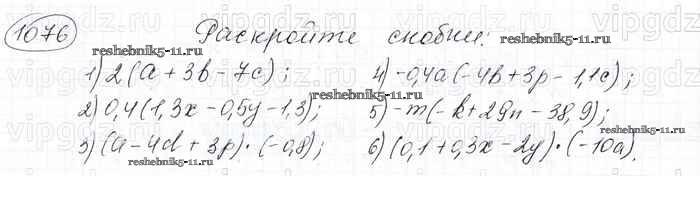 1076 Раскройте скобки:
reshebnik5-11.ru
reshebnik5-11.ru
1) 2(a + 3b - 7c);
4) -0,4a(-4b + 3p - 1,1c);
reshebnik5-11.ru
2) 0,4(1,3x - 0,5y - 1,3);
5) -m(-k + 29n - 38,9);
reshebnik5-11.ru
3) (a - 4d + 3p) · (-0,8);
6) (0,1 + 0,3x - 2y) · (-10a).
reshebnik5-11.ru